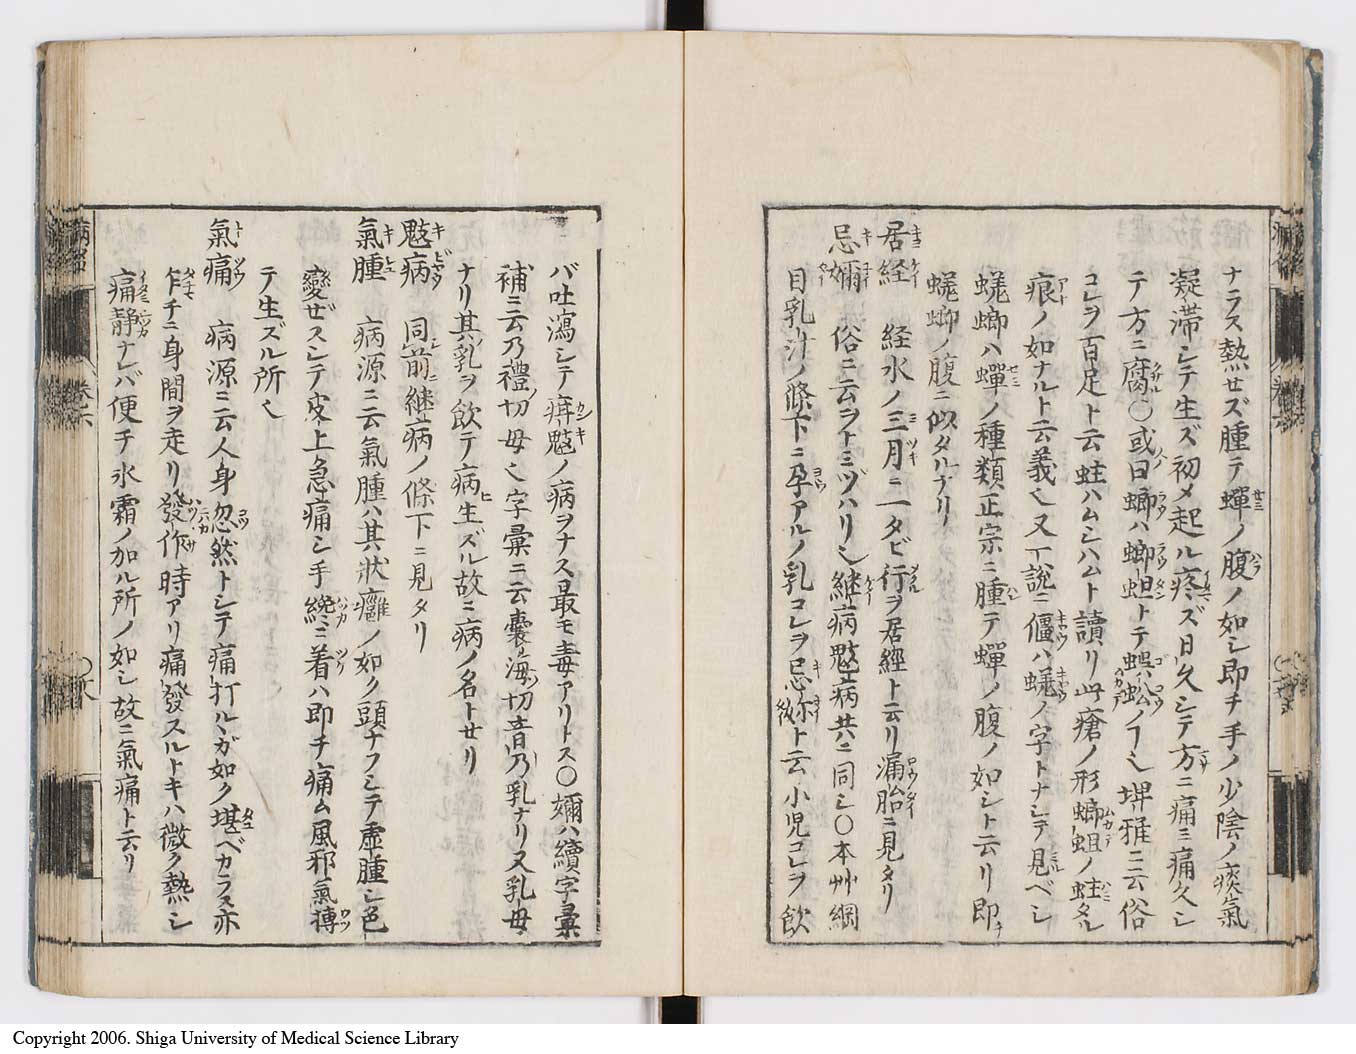 ナラス熱セズ腫テ蟬ノ腹ノ如シ即チ手ノ少陰ノ痰氣
凝滞シテ生ズ初メ起ル疼ズ日久シテ方ニ痛ミ痛久シ
テ方ニ腐○或曰蝍ハ蝍蛆トテ蜈蚣ノ㆒乄埤雅ニ云俗
コレヲ百足ト云蛀ハムシハムト讀リ此瘡ノ形蝍蛆ノ蛀タル
痕ノ如ナルト云義乄又一説ニ僵ハ蜣ノ字トナシテ見ベシ
蜣蜋ハ蟬ノ種類正宗ニ腫テ蟬ノ腹ノ如シト云リ即
蜣蜋ノ腹ニ似タルナリ
居経 経水ノ三月ニ一タビ行ヲ居經ト云リ漏胎ニ見タリ
忌嬭 俗ニ云ヲトミヅハリ乄継病鬾病共ニ同シ○本艸綱
目乳汁ノ條下ニ孕アルノ乳コレヲ忌妳ト云小児コレヲ飲
バ吐瀉シテ疳鬾ノ病ヲナス最モ毒アリトス○嬭ハ續字彙
補ニ云乃禮切母乄字彙ニ云嚢海切音乃乳ナリ又乳母
ナリ其乳ヲ飲テ病生ズル故ニ病ノ名トセリ
鬾病 同前継病ノ條下ニ見タリ
氣腫 病源ニ云氣腫ハ其状癰ノ如ク頭ナフシテ虚腫シ色
變ゼズシテ皮上急痛シ手纔ニ着ハ即チ痛ム風邪氣搏
テ生ズル所乄
氣痛 病源ニ云人身忽然トシテ痛打ルヽガ如ク堪ベカラス亦
乍チニ身間ヲ走リ發作時アリ痛發スルトキハ微ク熱シ
痛静ナレバ便チ氷霜ノ加ル所ノ如シ故ニ氣痛ト云リ
巻六
Copyright 2006. Shiga University of Medical Science Library